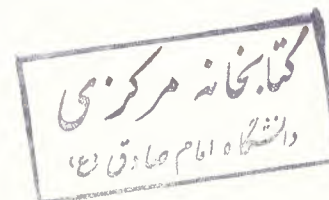 کتابخانه مرکزی
دانشگاه امام صادق (ع)